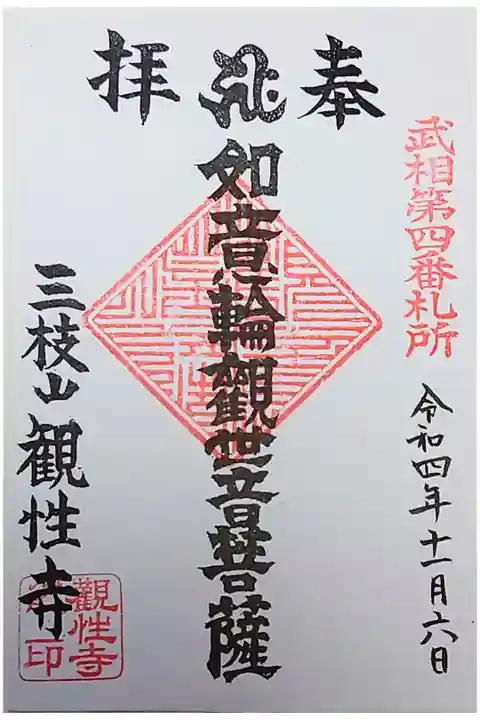 奉拝
武相第四番札所
令和四年十一月六日
如意輪觀世音菩薩
三枝山 観性寺
觀性寺
印